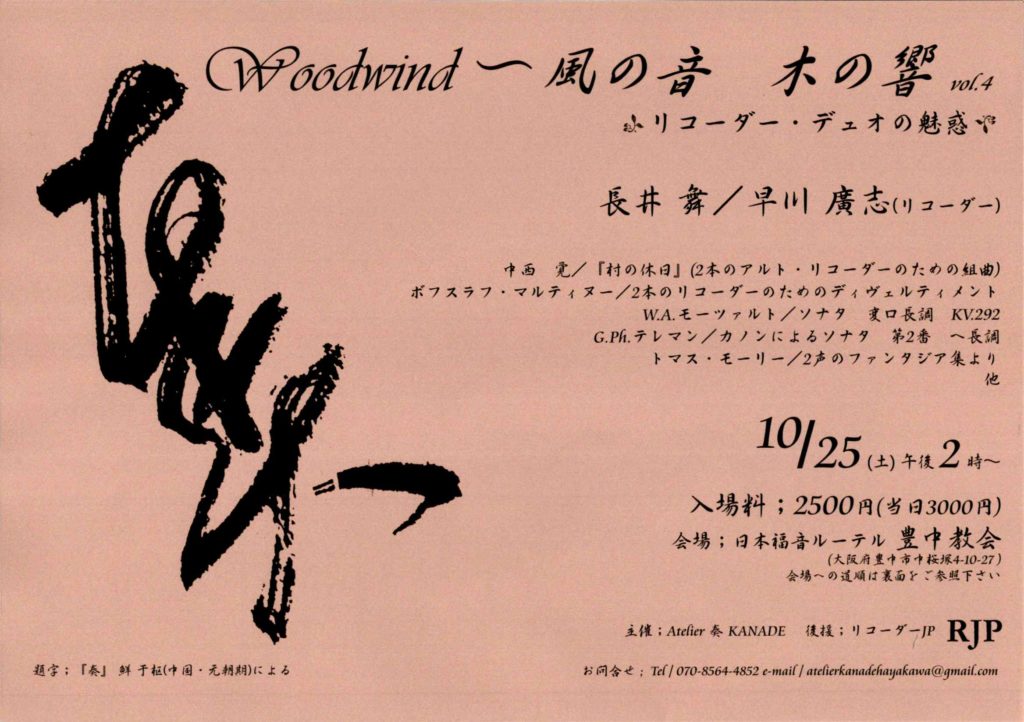 Woodwind ～ 風の音　木の響 vol.4
リコーダー・デュオの魅惑
長井 舞／早川 廣志(リコーダー)
中西　覚／『村の休日』(2本のアルト・リコーダーのための組曲)
ボフスラフ・マルティヌー／2本のリコーダーのためのディヴェルティメント
W.A.モーツァルト／ソナタ　変ロ長調　KV.292
G.Ph.テレマン／カノンによるソナタ　第2番　ヘ長調
トマス・モーリー／2声のファンタジア集より
他
10/25 (土) 午後 2 時～
入場料；2500円(当日3000円)
会場；日本福音ルーテル 豊中教会
(大阪府豊中市中桜塚4-10-27)
会場への道順は裏面をご参照下さい
主催；Atelier 奏 KANADE　後援；リコーダーJP RJP
題字；『奏』 鮮于枢(中国・元朝期)による
お問合せ；Tel / 070-8564-4852 e-mail / atelierkanadehayakawa@gmail.com